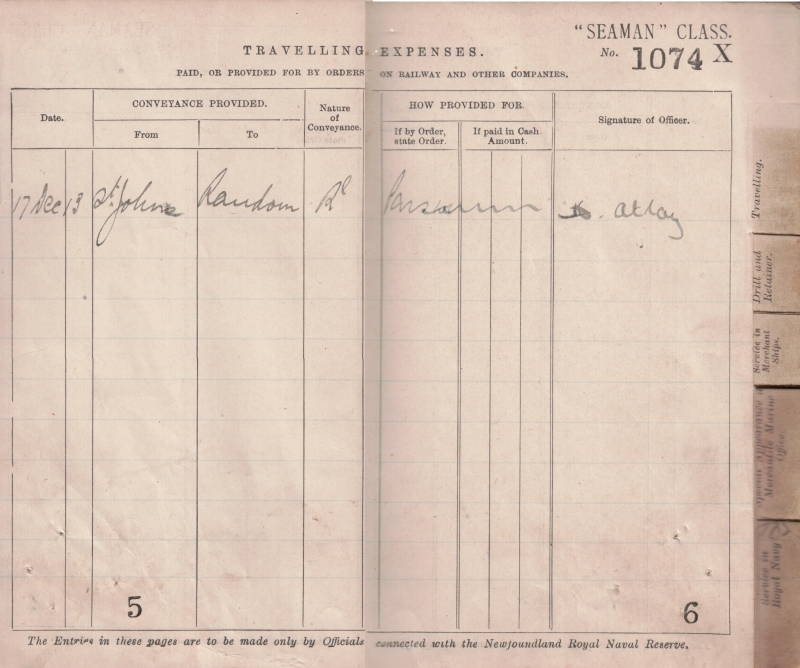 "SEAMAN" CLASS.
No. 1074 X
TRAVELLING EXPENSES.
PAID, OR PROVIDED FOR BY ORDERS ON RAILWAY AND OTHER COMPANIES.
Date.
CONVEYANCE PROVIDED.
From
To
Nature of Conveyance.
HOW PROVIDED FOR.
If by Order, state Order.
If paid in Cash Amount.
Signature of Officer.
17 Dec 13 St. Johns Random Rl
5
6
The Entries in these pages are to be made only by Officials connected with the Newfoundland Royal Naval Reserve.
Travelling.
Drill and Retainer.
Service in Merchant Ships.
Appearance Mercantile Marine Office
Service in Royal Navy